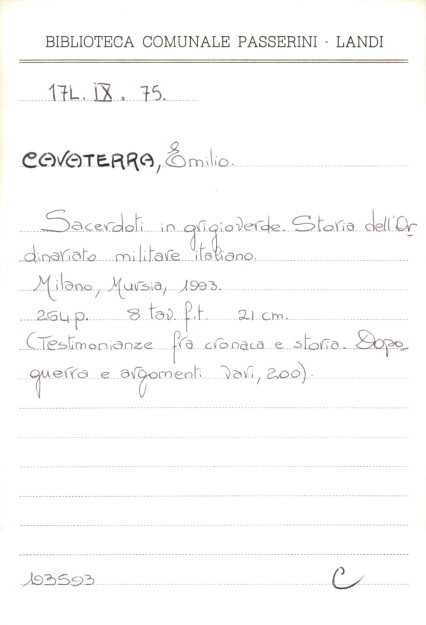 BIBLIOTECA COMUNALE PASSERINI - LANDI
17L. IX. 75.
CAVATERRA, Emilio.
Sacerdoti in grigioverde. Storia dell'Or
dinariato militare italiano.
Milano, Mursia, 1993.
264 p. 8 tav. f.t. 21 cm.
(Testimonianze fra cronaca e storia. Dopo
guerra e argomenti vari, 200).
193593 C